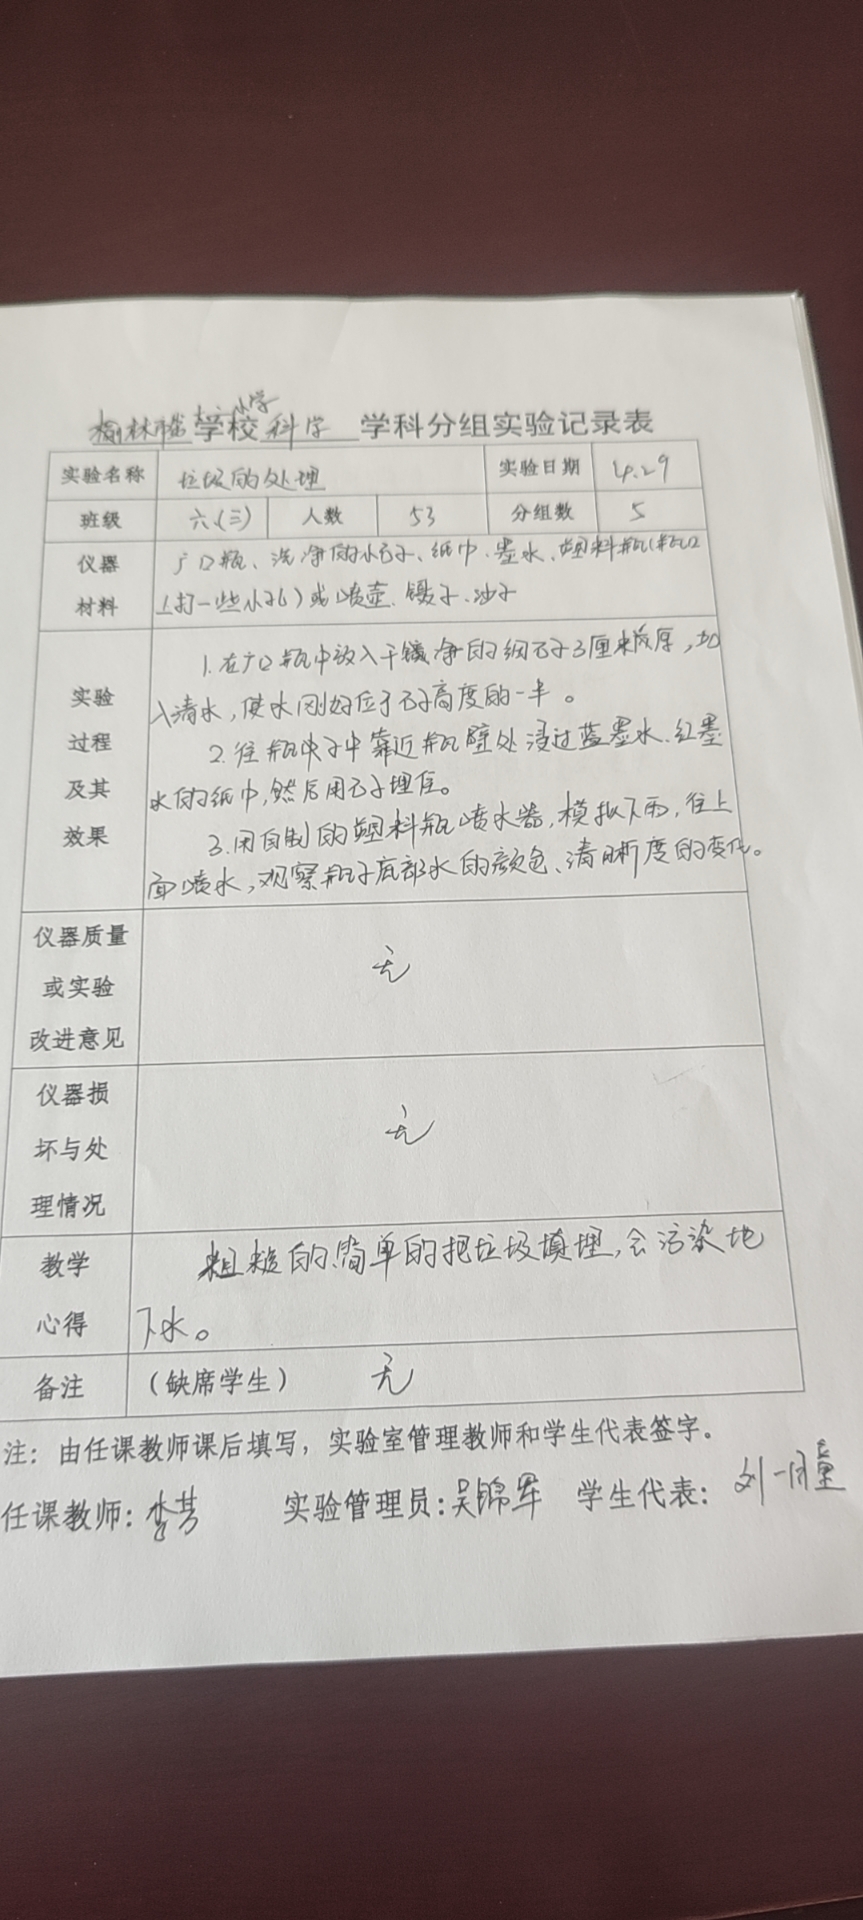 榆林市 小学
学校 科学 学科分组实验记录表
实验名称 垃圾的处理 实验日期 4.29
班级 六(三) 人数 53 分组数 5
仪器材料
广口瓶、洗净的小石子、纸巾、墨水、塑料瓶(瓶口
上打一些小孔)或喷壶、镊子、沙子
实验过程及其效果
1.在广口瓶中放入干净的细石子3厘米厚,加
入清水,使水刚好位于石子高度的一半。
2.往瓶中靠近瓶壁处浸过蓝墨水、红墨
水的纸巾,然后用石子埋住。
3.用自制的塑料瓶喷水器,模拟下雨,往上
面喷水,观察瓶子底部水的颜色、清晰度的变化。
仪器质量或实验改进意见
无
仪器损坏与处理情况
无
教学心得
粗糙的简单的把垃圾填埋,会污染地
下水。
备注 (缺席学生) 无
注:由任课教师课后填写,实验室管理教师和学生代表签字。
任课教师:李芳 实验管理员:吴锦军 学生代表:刘一